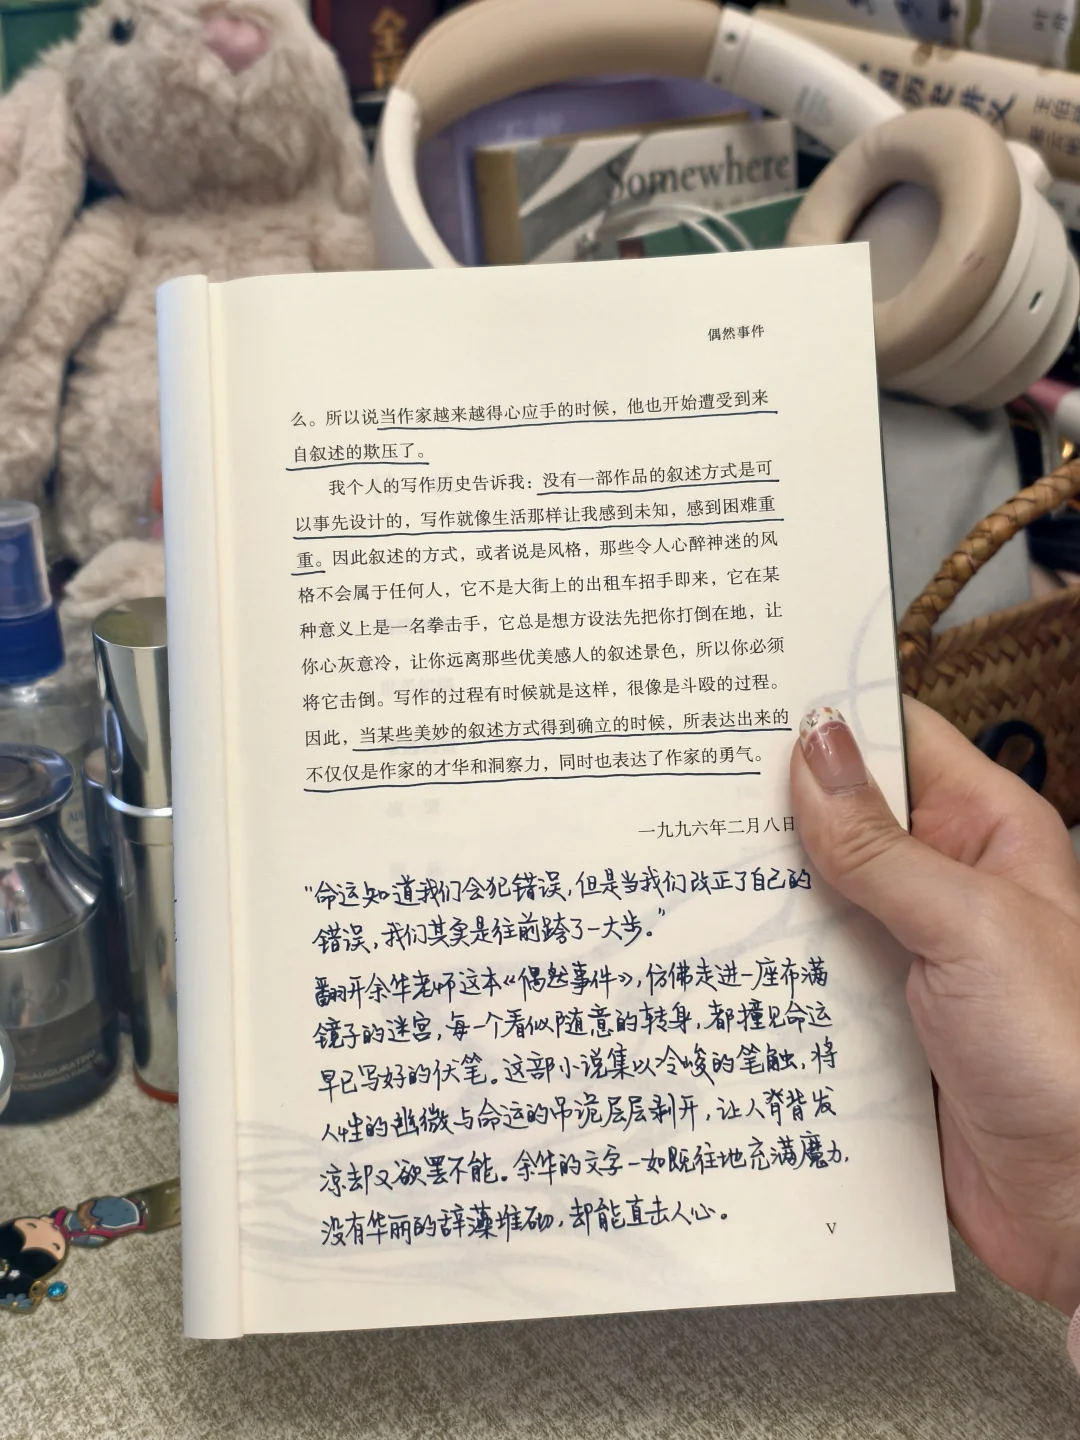 全
Somewhere
历史讲义
偶然事件
么。所以说当作家越来越得心应手的时候，他也开始遭受到来
自叙述的欺压了。
我个人的写作历史告诉我：没有一部作品的叙述方式是可
以事先设计的，写作就像生活那样让我感到未知，感到困难重
重。因此叙述的方式，或者说是风格，那些令人心醉神迷的风
格不会属于任何人，它不是大街上的出租车招手即来，它在某
种意义上是一名拳击手，它总是想方设法先把你打倒在地，让
你心灰意冷，让你远离那些优美感人的叙述景色，所以你必须
将它击倒。写作的过程有时候就是这样，很像是斗殴的过程。
因此，当某些美妙的叙述方式得到确立的时候，所表达出来的
不仅仅是作家的才华和洞察力，同时也表达了作家的勇气。
一九九六年二月八日
“命运知道我们会犯错误，但是当我们改正了自己的
错误，我们其实是往前跨了一大步。”
翻开余华老师这本《偶然事件》，仿佛走进一座布满
镜子的迷宫，每一个看似随意的转身，都撞见命运
早已写好的伏笔。这部小说集以冷峻的笔触，将
人性的幽微与命运的吊诡层层剥开，让人脊背发
凉却又欲罢不能。余华的文字一如既往地充满魔力，
没有华丽的辞藻堆砌，却能直击人心。
V